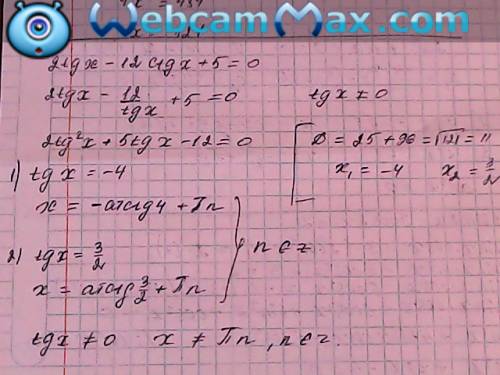 WebcamMax.com
2tgx - 12ctgx + 5 = 0
2tgx - 12/tgx + 5 = 0 tgx ≠ 0
2tg²x + 5tgx - 12 = 0
D = 25 + 96 = √121 = 11
x₁ = -4 x₂ = 3/2
1) tgx = -4
x = -arctg4 + Пn
2) tgx = 3/2
x = arctg 3/2 + Пn
n ∈ z
tgx ≠ 0 x ≠ Пn, n ∈ z.